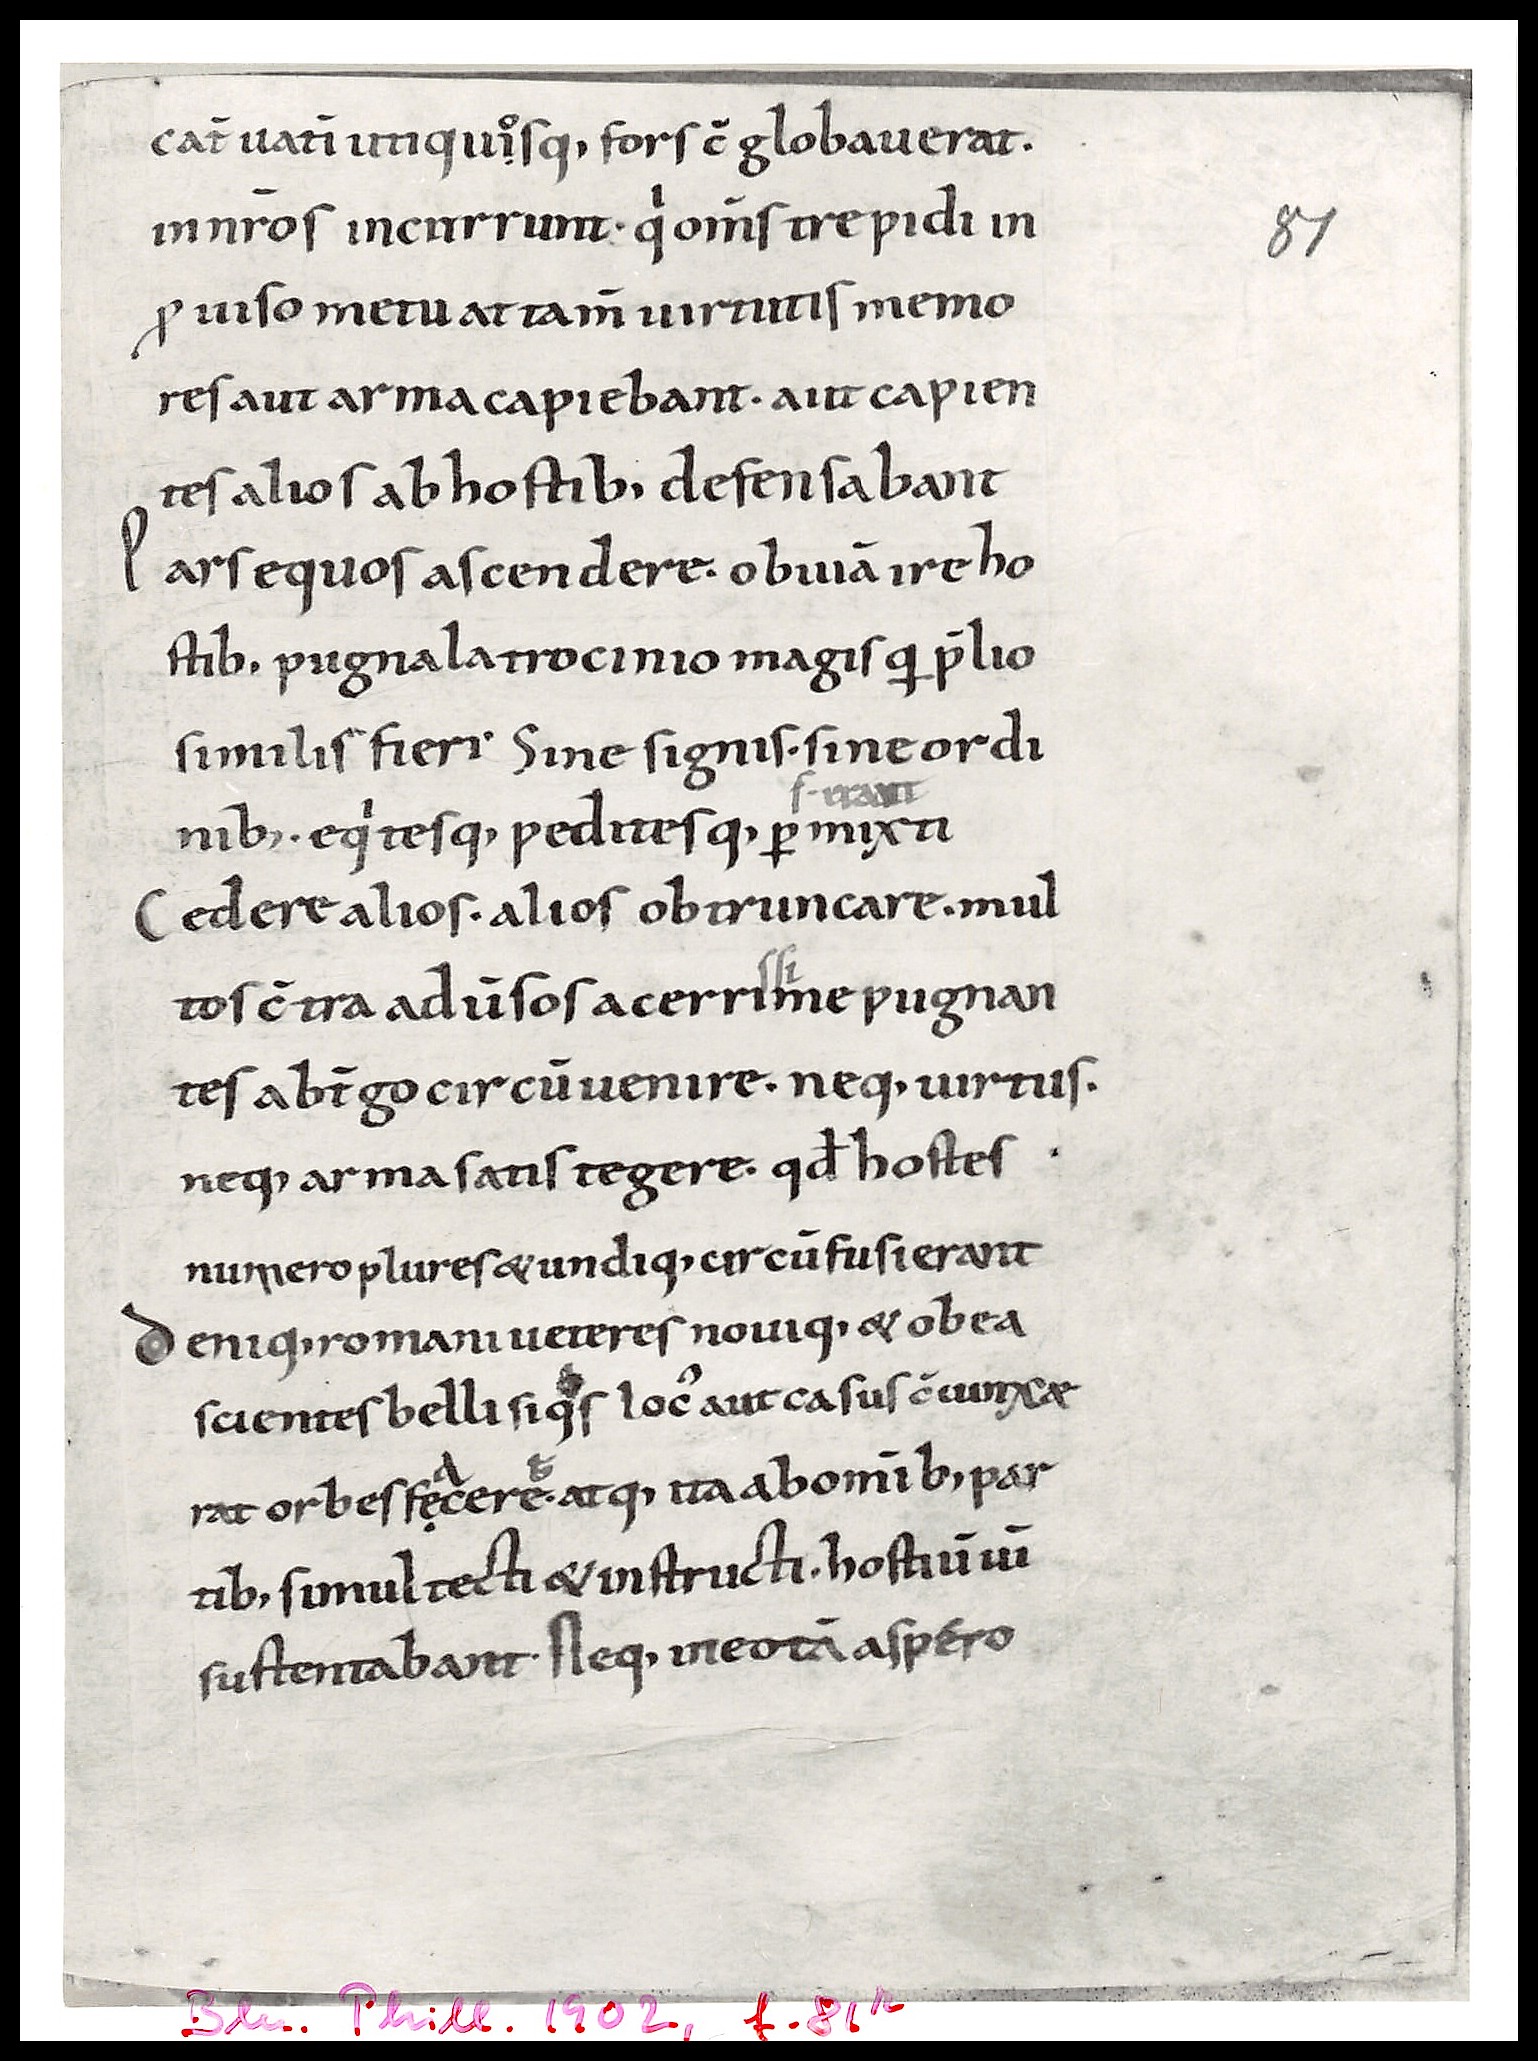 cat̄ uatī uti quiosq, fors c̄ globauerat.
in nr̄os incurrunt. qi om̄s trepidi in
81
ꝓuiso metu at tam̄ uirtutis memo
res aut arma capiebant. aut capien
tes alios ab hostib, defensabant
Pars equos ascendere. obuiā ire ho
stib, pugna latrocinio magis qꝫ p̄lio
similis fieri Sine signis. sine ordi
f. erant
nib,. eqitesq, peditesq, ꝑmixti
Cedere alios. alios obtruncare. mul
ssi
tos c̄tra adūsos acerrime pugnan
tes ab t̄go circūuenire. neq, uirtus.
neq, arma satis tegere. qđ hostes
numero plures & undiq, circūfusi erant
Deniq, romani ueteres nouiq, & ob ea
scientes belli si qos loc᾽ aut casus c̄iunxæ
a
rat orbes fęcere. atq, ita ab om̄ib, par
tib, simul tecti & instructi. hostiū uī
sustentabant. Neq, in eo tā aspero
Bln. Phill. 1902, f. 81r